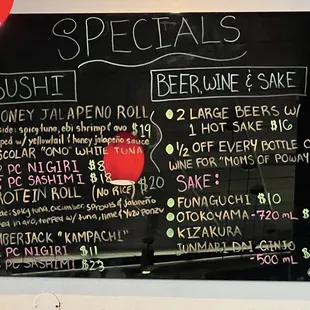 SPECIALS
SUSHI
HONEY JALAPENO ROLL
side: spicy tuna, ebi shrimp & avo $19
topped w/ yellowtail & honey jalapeño sauce
ESCOLAR "ONO" WHITE TUNA
PC NIGIRI $8
PC SASHIMI $18
PROTEIN ROLL (NO RICE) $20
side: spicy tuna, cucumber, sprouts & jalapeño
in avo, topped w/ tuna, lime & yuzu ponzu
AMBERJACK "KAMPACHI"
PC NIGIRI $11
PC SASHIMI $23
BEER, WINE & SAKE
2 LARGE BEERS W/
1 HOT SAKE $16
1/2 OFF EVERY BOTTLE O
WINE FOR "MOMS OF POWAY
SAKE:
FUNAGUCHI $10
OTOKOYAMA - 720 mL $
KIZAKURA
JUNMAI DAI GINJO
-500 mL $